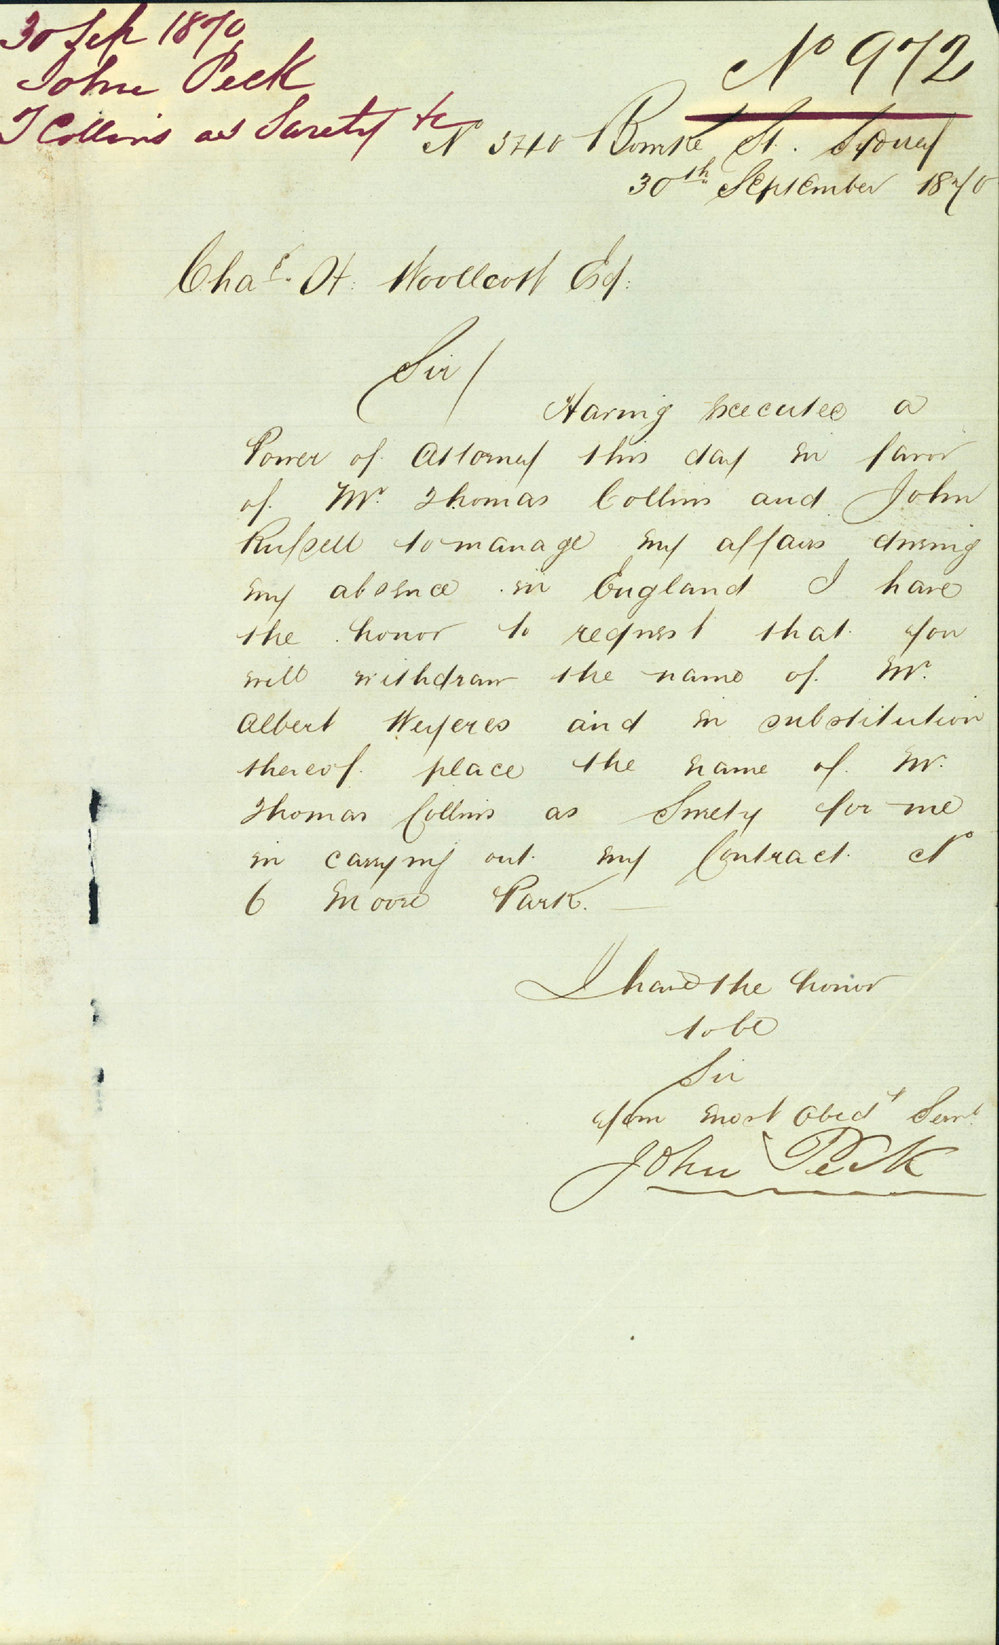 30 Sep 1870
John Peck
T Collins as Surety &c
No 972
No 540 Bourke St. Sydney
30th September 1870
Chas. H. Woollcott Esq.
Sir/
Having executed a
Power of Attorney this day in favor
of Mr Thomas Collins and John
Russell to manage my affairs during
my absence in England I have
the honor to request that you
will withdraw the name of Mr.
Albert Weyeres and in substitution
thereof place the name of Mr.
Thomas Collins as Surety for me
in carrying out my Contract No
6 Moore Park. —
I have the honor
to be
Sir
your most Obedt Servt
John Peck